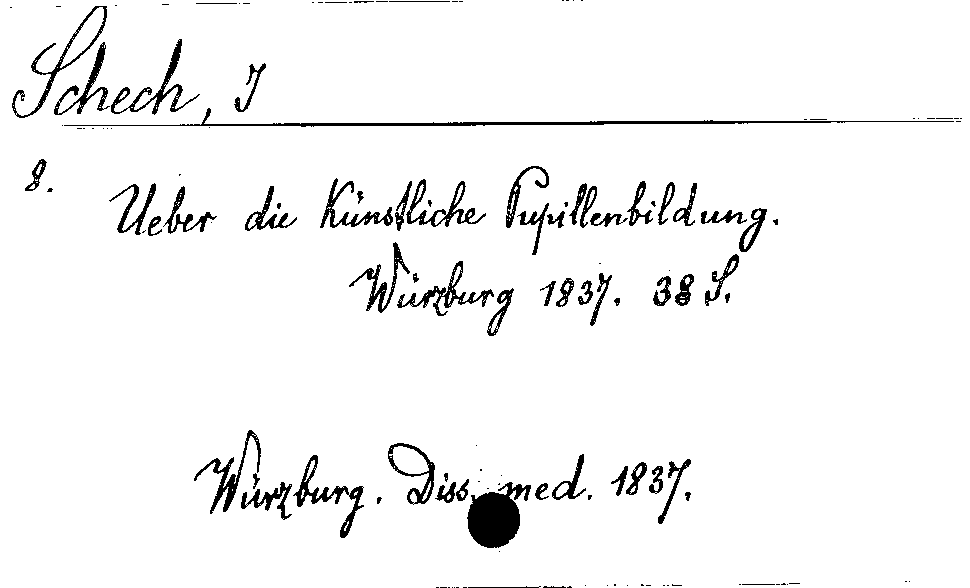 Schech, J
8.
Ueber die Künstliche Pupillenbildung.
Würzburg 1837. 38 S.
Würzburg. Diss. med. 1837.